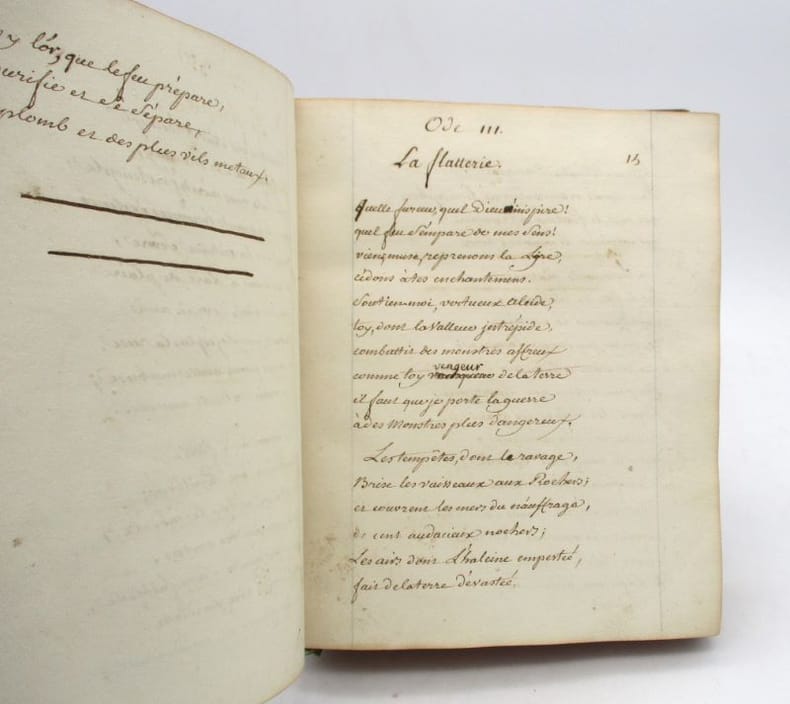 y l'or, que le feu prépare,
urifie et se sépare,
plomb et des plus vils metaux.
Ode III.
La flatterie.
15
quelle fureur, quel Dieu m'inspire!
quel feu s'empare de mes sens!
viens, muse, reprenons la Lyre,
cédons à tes enchantemens.
soutien-moi, vertueux alcide,
toy, dont la valleur jntrépide,
combattit des monstres affreux
comme toy vengeur de la terre
il faut que je porte la guerre
à des Monstres plus dangereux.
Les tempêtes, dont le ravage,
Brise les vaisseaux aux Rochers;
et couvrent les mers du náuffrage,
de cent audacieux nochers;
Les airs dont L'haleine empestée,
fait de la terre dévastée,